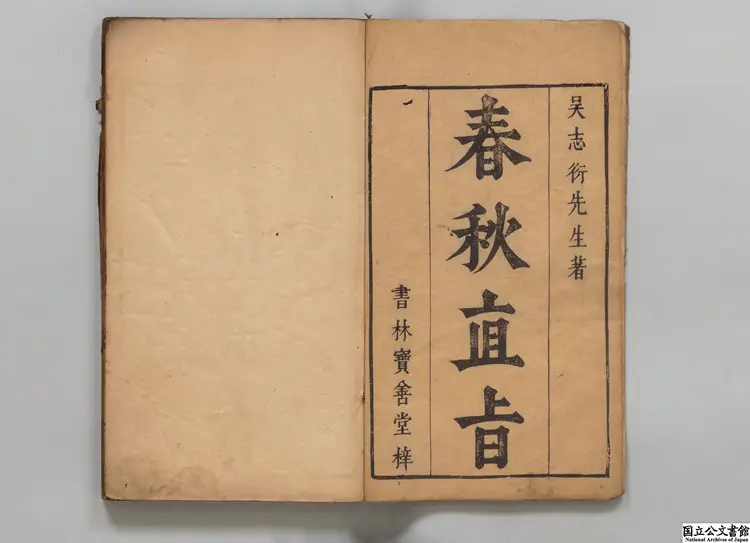 吴志衍先生著
春秋直旨
書林寶善堂梓
国立公文書館
National Archives of Japan